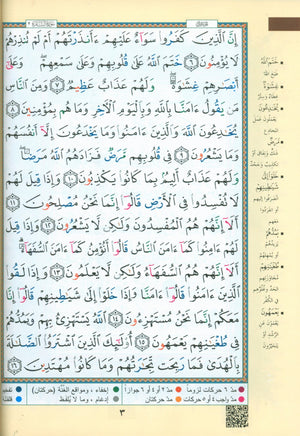 إِنَّ ٱلَّذِينَ كَفَرُوا۟ سَوَآءٌ عَلَيْهِمْ ءَأَنذَرْتَهُمْ أَمْ لَمْ تُنذِرْهُمْ
لَا يُؤْمِنُونَ ٦ خَتَمَ ٱللَّهُ عَلَىٰ قُلُوبِهِمْ وَعَلَىٰ سَمْعِهِمْ ۖ وَعَلَىٰٓ
أَبْصَٰرِهِمْ غِشَٰوَةٌ ۖ وَلَهُمْ عَذَابٌ عَظِيمٌ ٧ وَمِنَ ٱلنَّاسِ
مَن يَقُولُ ءَامَنَّا بِٱللَّهِ وَبِٱلْيَوْمِ ٱلْءَاخِرِ وَمَا هُم بِمُؤْمِنِينَ ٨
يُخَٰدِعُونَ ٱللَّهَ وَٱلَّذِينَ ءَامَنُوا۟ وَمَا يَخْدَعُونَ إِلَّآ أَنفُسَهُمْ
وَمَا يَشْعُرُونَ ٩ فِى قُلُوبِهِم مَّرَضٌ فَزَادَهُمُ ٱللَّهُ مَرَضًا ۖ
وَلَهُمْ عَذَابٌ أَلِيمٌۢ بِمَا كَانُوا۟ يَكْذِبُونَ ١٠ وَإِذَا قِيلَ لَهُمْ
لَا تُفْسِدُوا۟ فِى ٱلْأَرْضِ قَالُوٓا۟ إِنَّمَا نَحْنُ مُصْلِحُونَ ١١
أَلَآ إِنَّهُمْ هُمُ ٱلْمُفْسِدُونَ وَلَٰكِن لَّا يَشْعُرُونَ ١٢ وَإِذَا قِيلَ
لَهُمْ ءَامِنُوا۟ كَمَآ ءَامَنَ ٱلنَّاسُ قَالُوٓا۟ أَنُؤْمِنُ كَمَآ ءَامَنَ ٱلسُّفَهَآءُ ۗ
أَلَآ إِنَّهُمْ هُمُ ٱلسُّفَهَآءُ وَلَٰكِن لَّا يَعْلَمُونَ ١٣ وَإِذَا لَقُوا۟
ٱلَّذِينَ ءَامَنُوا۟ قَالُوٓا۟ ءَامَنَّا وَإِذَا خَلَوْا۟ إِلَىٰ شَيَٰطِينِهِمْ قَالُوٓا۟ إِنَّا
مَعَكُمْ إِنَّمَا نَحْنُ مُسْتَهْزِءُونَ ١٤ ٱللَّهُ يَسْتَهْزِئُ بِهِمْ وَيَمُدُّهُمْ
فِى طُغْيَٰنِهِمْ يَعْمَهُونَ ١٥ أُو۟لَٰٓئِكَ ٱلَّذِينَ ٱشْتَرَوُا۟ ٱلضَّلَٰلَةَ
بِٱلْهُدَىٰ فَمَا رَبِحَت تِّجَٰرَتُهُمْ وَمَا كَانُوا۟ مُهْتَدِينَ ١٦
خَتَمَ اللهُ
طبع الله
غِشَاوَةٌ
غطاء وستر
يُخَادِعُونَ
يعملون عمل
المخادع
مَرَضٌ
خَلَوْا إلى
شَيَاطِينِهِم
يَمُدُّهُمْ
طُغْيَانِهِمْ
يَعْمَهُونَ
مد ٦ حركات لزوماً
مد ٢ أو ٤ أو ٦ جوازاً
إخفاء، ومواقع الغنة (حركتان)
تفخيم
مد واجب ٤ أو ٥ حركات
مد حركتان
إدغام، وما لا يلفظ
قلقلة
٣